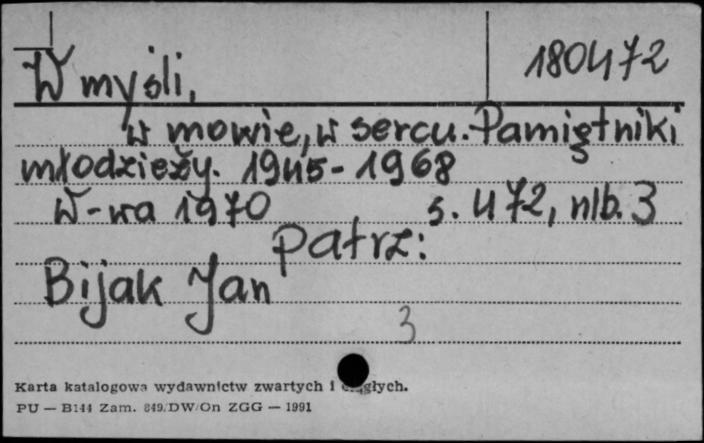 180472
W myśli,
w mowie, w sercu. Pamiętniki
młodzieży. 1945-1968
W-wa 1970 s. 472, nlb. 3
patrz:
Bijak Jan
3
Karta katalogowa wydawnictw zwartych i ciągłych.
PU — B144 Zam. 849/DW/On ZGG — 1991